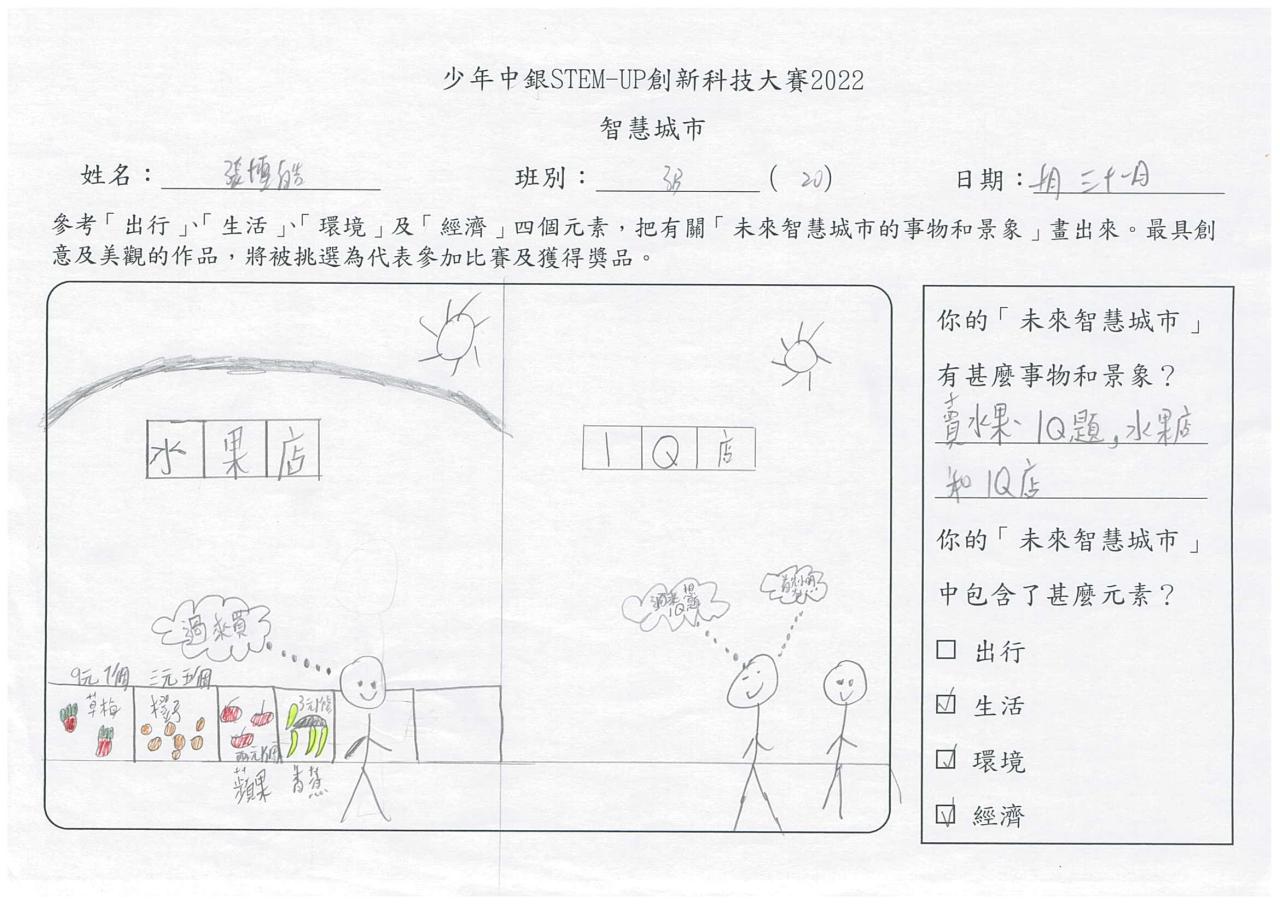 少年中銀STEM-UP創新科技大賽2022
智慧城市
姓名：
班別： (20)
日期：十月三十一日
參考「出行」、「生活」、「環境」及「經濟」四個元素，把有關「未來智慧城市的事物和景象」畫出來。最具創
意及美觀的作品，將被挑選為代表參加比賽及獲得獎品。
水果店
IQ店
過來買
9元1個 三元五個
草梅
橙子
兩元1個
蘋果
香蕉
你的「未來智慧城市」
有甚麼事物和景象？
賣水果、IQ題,水果店
和IQ店
你的「未來智慧城市」
中包含了甚麼元素？
出行
生活
環境
經濟